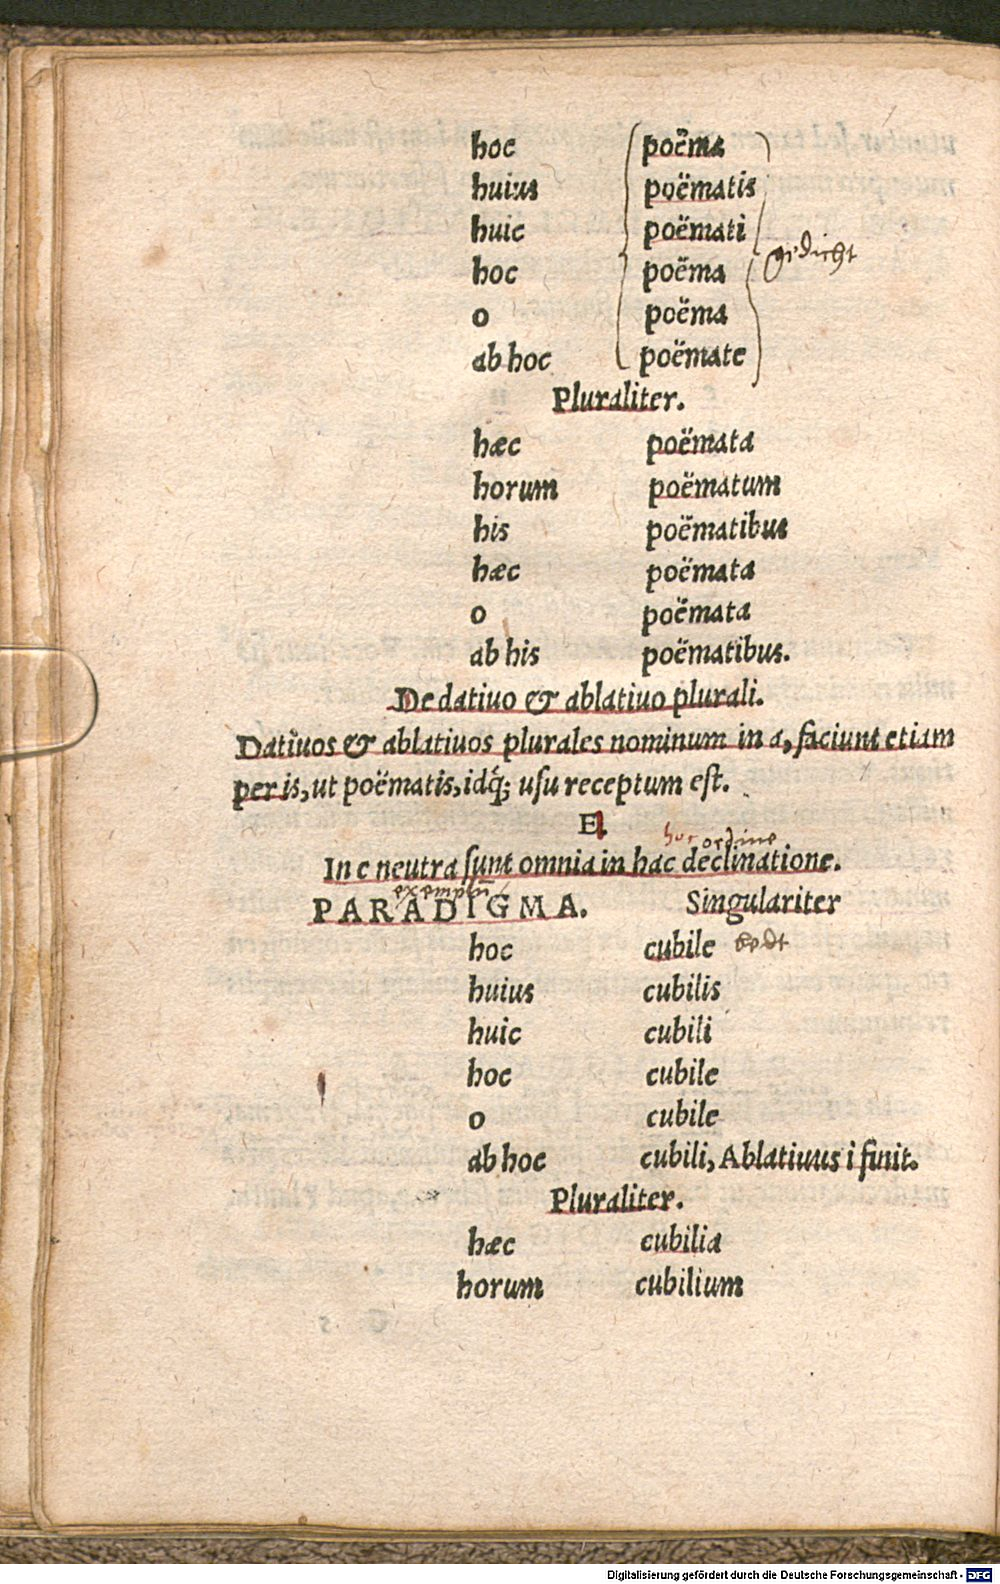 hoc poëma
huius poëmatis
huic poëmati
gedicht
hoc poëma
o poëma
ab hoc poëmate
Pluraliter.
hæc poëmata
horum poëmatum
his poëmatibus
hæc poëmata
o poëmata
ab his poëmatibus.
De datiuo & ablatiuo plurali.
Datiuos & ablatiuos plurales nominum in a, faciunt etiam
per is, ut poëmatis, idq́; usu receptum est.
E
hoc ordine
In e neutra sunt omnia in hac declinatione.
exemplū
PARADIGMA. Singulariter
hoc cubile bedt
huius cubilis
huic cubili
hoc cubile
o cubile
ab hoc cubili, Ablatiuus i finit.
Pluraliter.
hæc cubilia
horum cubilium
Digitalisierung gefördert durch die Deutsche Forschungsgemeinschaft - DFG